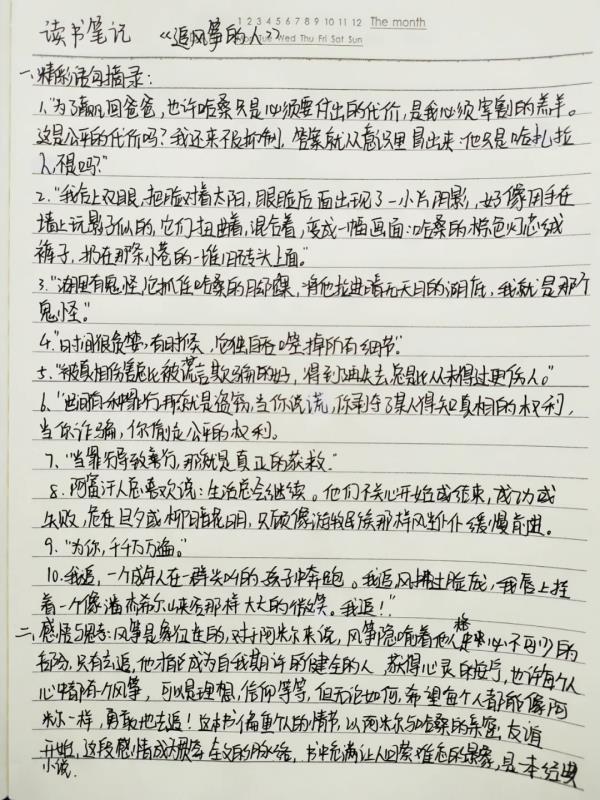 读书笔记 《追风筝的人》
1 2 3 4 5 6 7 8 9 10 11 12 The month
Mon Tue Wed Thu Fri Sat Sun
一、精彩语句摘录:
1."为了赢回爸爸,也许哈桑只是必须要付出的代价,是我必须宰割的羔羊。
这是公平的代价吗?我还来不及抑制,答案就从意识里冒出来:他只是哈扎拉
人,不是吗?"
2."我合上双眼,把脸对着太阳,眼睑后面出现了一小片阴影,好像用手在
墙上玩影子似的,它们扭曲着,混合着,变成一幅画面:哈桑的棕色灯芯绒
裤子,扔在那条小巷的一堆旧砖头上面。"
3."湖里有鬼怪,它抓住哈桑的脚踝,将他拉进暗无天日的湖底,我就是那个
鬼怪。"
4."时间很贪婪,有时候,它独自吞噬掉所有细节。"
5."被真相伤害总比被谎言欺骗的好,得到再失去总是比从未得过更伤人。"
6."世间有一种罪行,那就是盗窃,当你说谎,你剥夺了某人得知真相的权利,
当你诈骗,你偷走公平的权利。
7."当罪行导致善行,那就是真正的获救."
8.阿富汗人总喜欢说:生活总会继续。他们不关心开始或结束,成功或
失败,危在旦夕或柳暗花明,只顾像游牧民族那样风尘仆仆缓慢前进。
9."为你,千千万万遍。"
10.我追,一个成年人在一群尖叫的孩子中奔跑。我追,风拂过脸庞,我唇上挂
着一个像潘杰希尔峡谷那样大大的微笑。我追!"
二、感悟与思考:风筝是象征性的,对于阿米尔来说,风筝隐喻着他人格中必不可少的
部分,只有去追,他才能成为自我期许的健全的人,获得心灵的安宁,也许每个人
心中都有个风筝,可以是理想,信仰等等,但无论如何,希望每个人都能像阿
米尔一样,勇敢地去追!这本书偏重个人的情节,以阿米尔与哈桑的亲密友谊
开始,这段感情成为贯穿全文的脉络,书中充满让人回萦难忘的景象,是一本经典
小说.